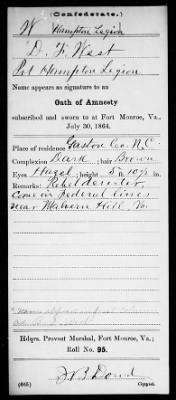 (Confederate.)
W Hampton Legion
D. F. West
Pvt Hampton Legion
Name appears as signature to an
Oath of Amnesty
subscribed and sworn to at Fort Monroe, Va.,
July 30, 1864.
Place of residence Gaston Co. N.C.
Complexion Dark; hair Brown
Eyes Hazel; height 5 ft. 10½ in.
Remarks: Rebel deserter,
Came in Federal lines
near Malvern Hill, Va.
Hdqrs. Provost Marshal, Fort Monroe, Va.;
Roll No. 95.
(665)
Copyist.